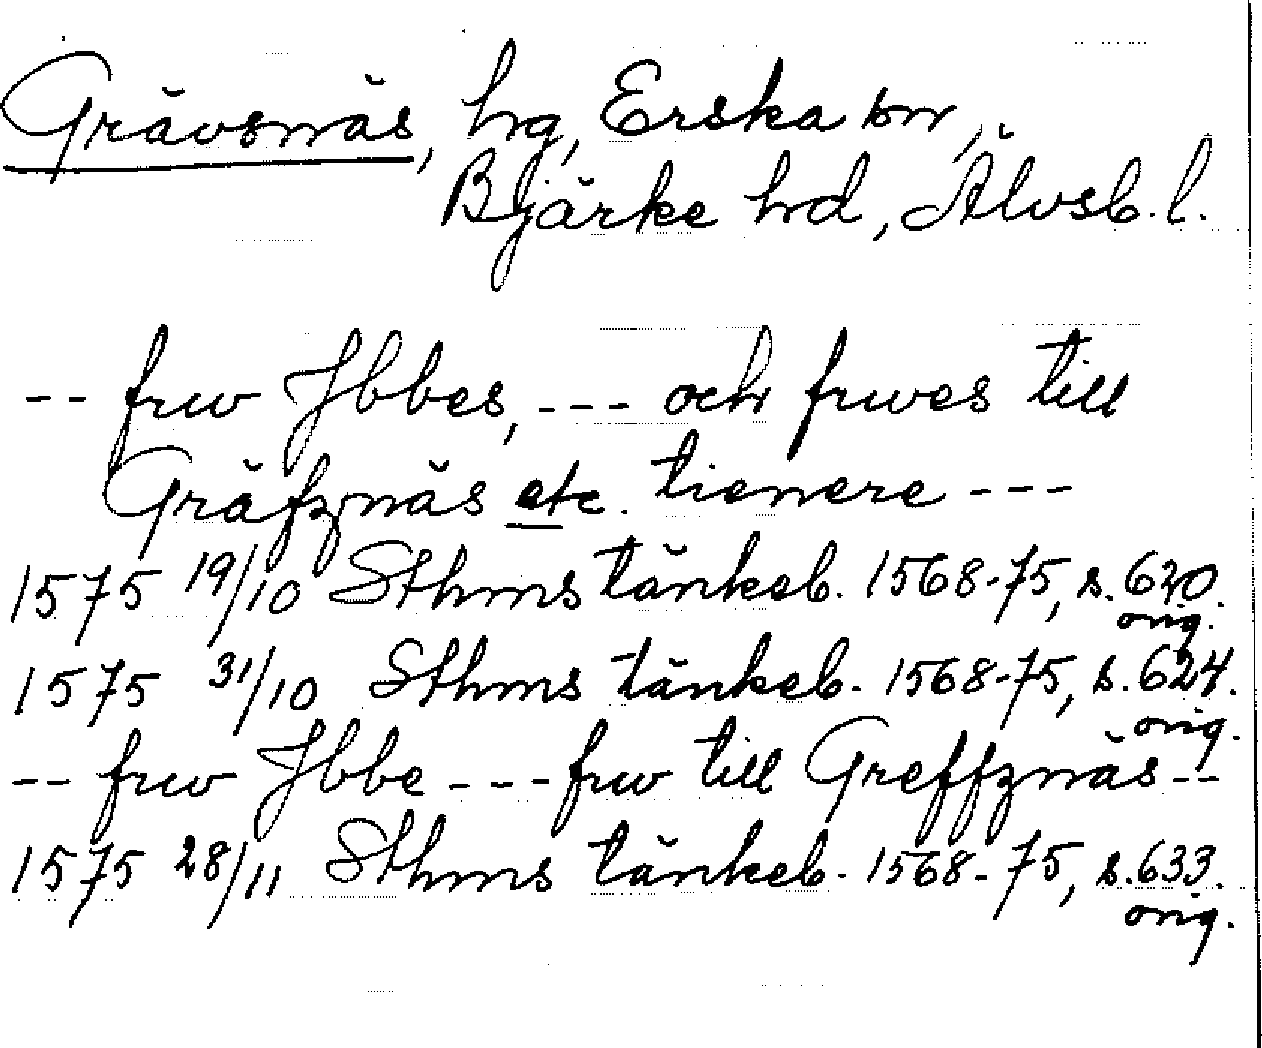 Grävsnäs, hrg, Erska sn,
Bjärke hrd, Älvsb. l.
-- frw Jbbes, --- och frwes till
Gräfznäs etc. tienere ---
1575 19/10 Sthms tänkeb. 1568-75, s. 620.
orig.
1575 31/10 Sthms tänkeb. 1568-75, s. 624.
orig.
-- frw Jbbe --- frw till Greffznäs --
1575 28/11 Sthms tänkeb. 1568-75, s. 633.
orig.